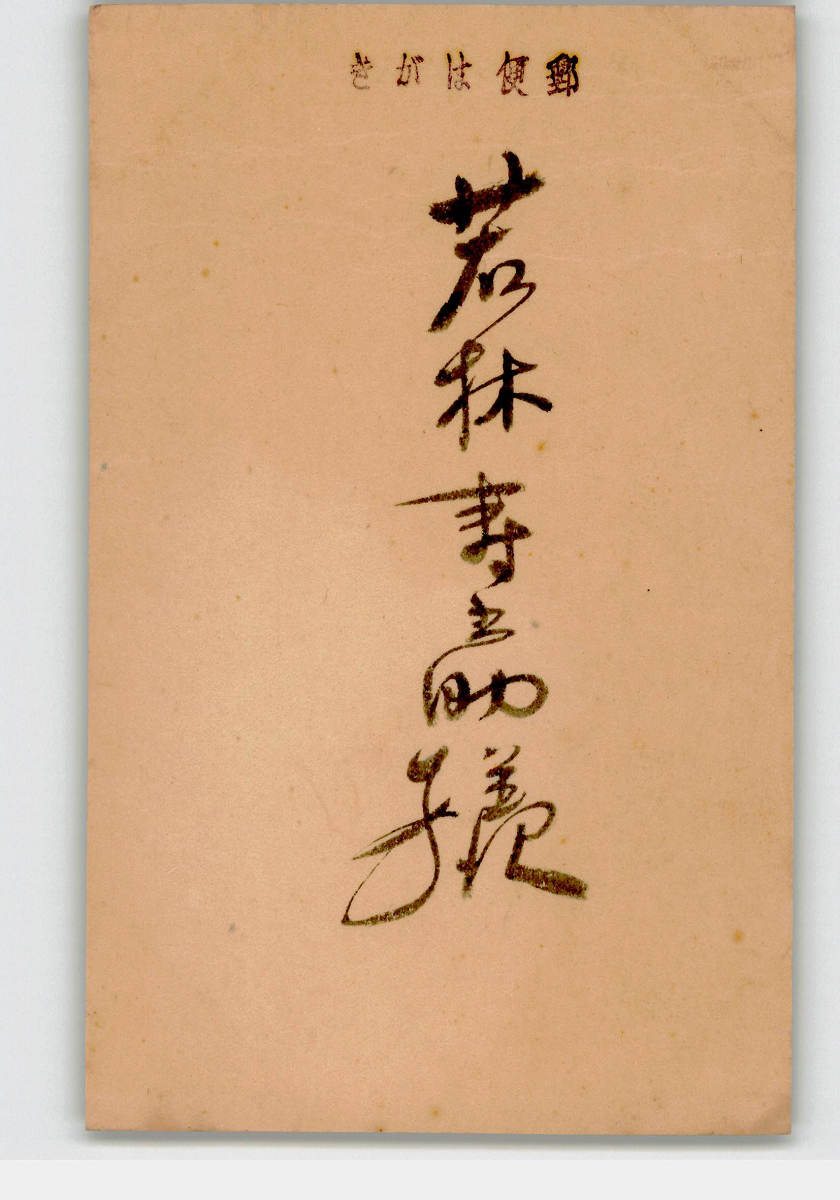 郵便はがき
若林寿之助様